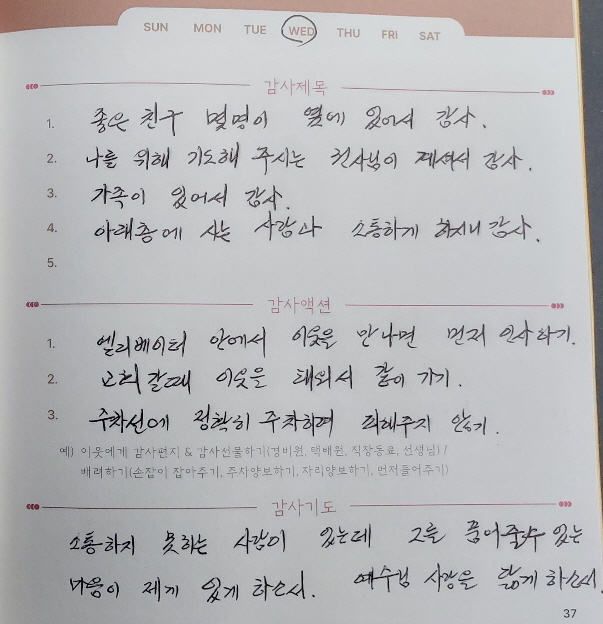 SUN MON TUE WED THU FRI SAT
감사제목
1. 좋은 친구 몇명이 옆에 있어서 감사.
2. 나를 위해 기도해 주시는 천사님이 계셔서 감사.
3. 가족이 있어서 감사.
4. 아래층에 사는 사람과 소통하게 하시니 감사.
5.
감사액션
1. 엘리베이터 안에서 이웃을 만나면 먼저 인사하기.
2. 교회 갈때 이웃을 태워서 같이 가기.
3. 주차선에 정확히 주차하며 피해주지 않기.
예) 이웃에게 감사편지 & 감사선물하기(경비원, 택배원, 직장동료, 선생님) /
배려하기(손잡이 잡아주기, 주차양보하기, 자리양보하기, 먼저들어주기)
감사기도
소통하지 못하는 사람이 있는데 그를 품어줄수 있는
마음이 제게 있게 하소서. 예수님 사랑을 닮게 하소서.
37